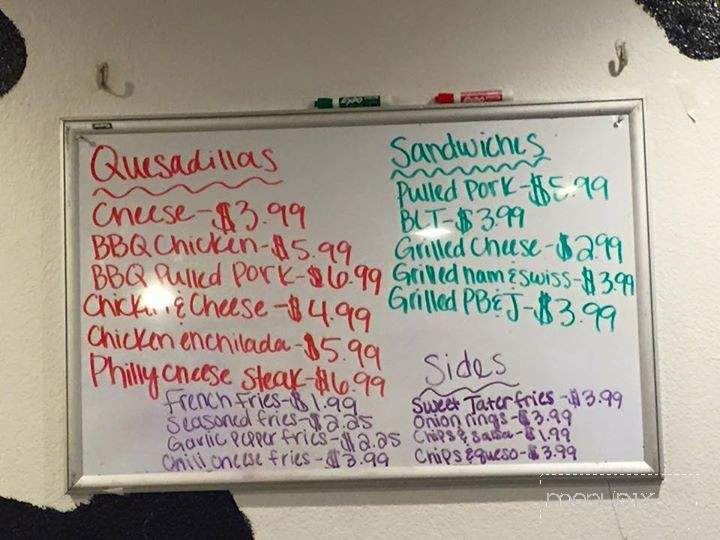 Quesadillas
Cheese - $3.99
BBQ Chicken - $5.99
BBQ Pulled Pork - $6.99
Chicken & Cheese - $4.99
Chicken enchilada - $5.99
Philly cheese steak - $6.99
Sandwiches
Pulled Pork - $5.99
BLT - $3.99
Grilled Cheese - $2.99
Grilled ham & swiss - $3.99
Grilled PB & J - $3.99
Sides
French fries - $1.99
Seasoned fries - $2.25
Garlic Pepper fries - $2.25
Chili cheese fries - $3.99
Sweet Tater fries - $3.99
Onion rings - $3.99
Chips & salsa - $1.99
Chips & queso - $3.99
EXPO
menupix